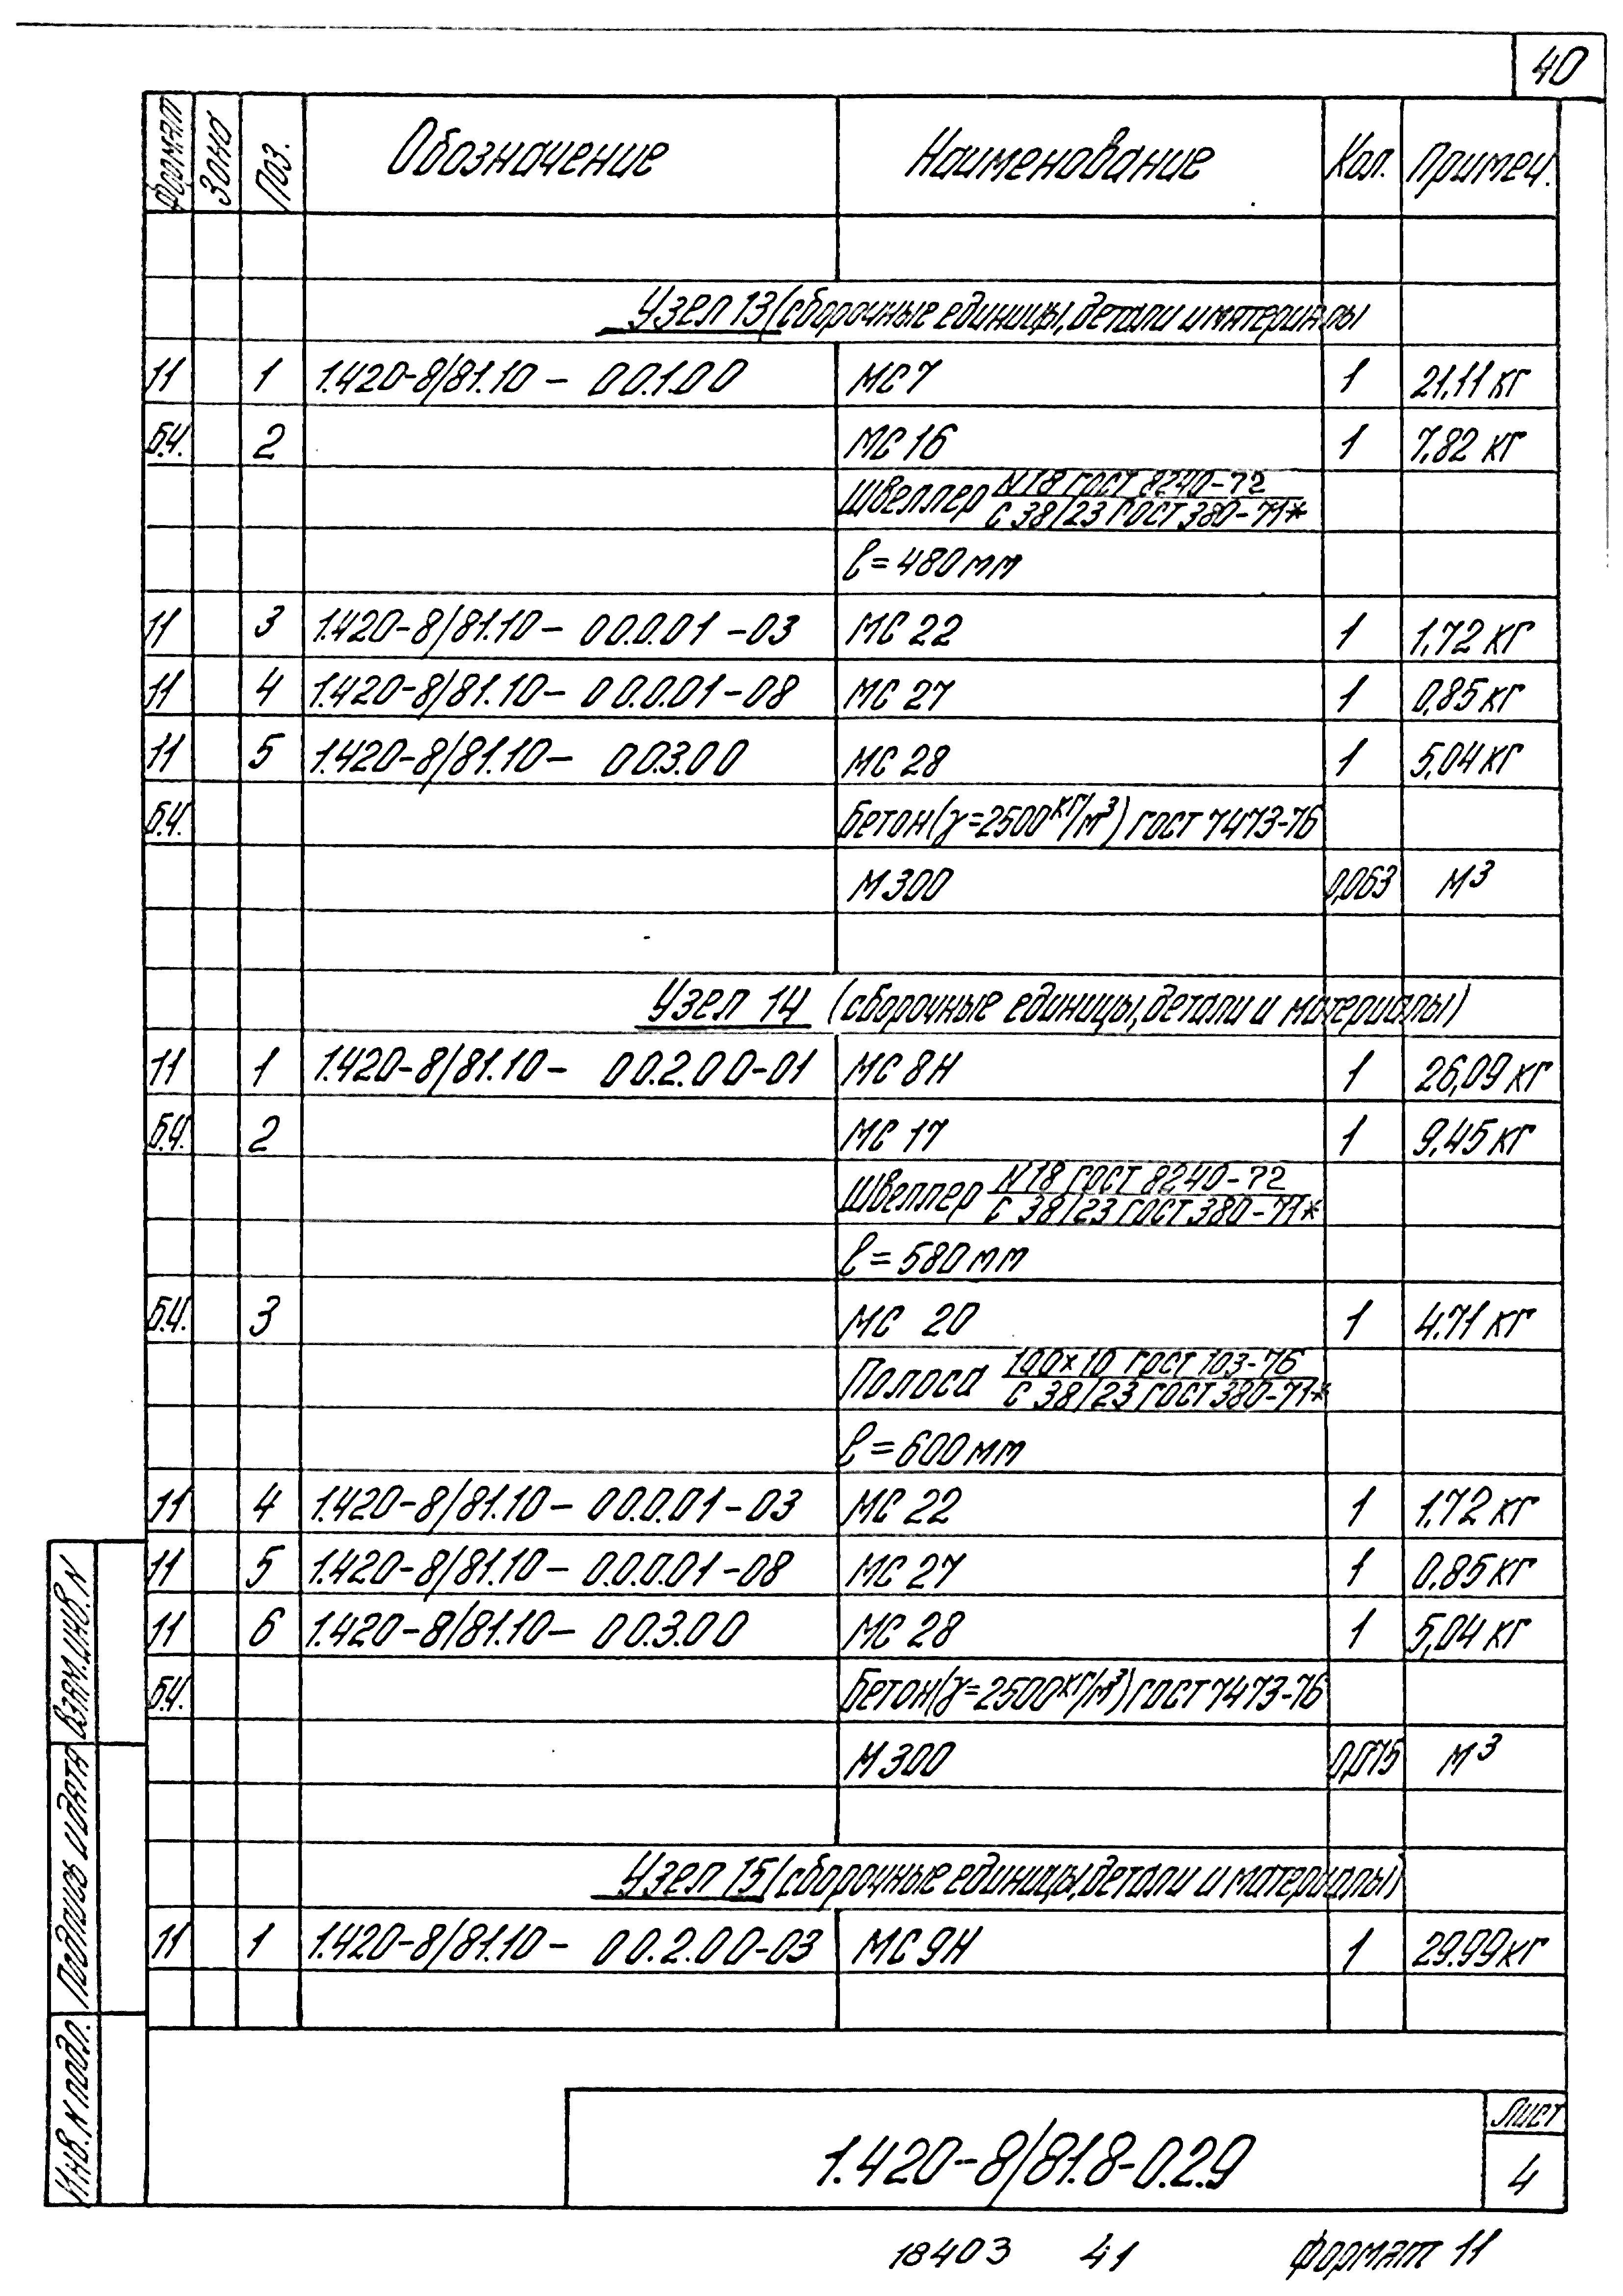 40
Формат Зона Поз. Обозначение Наименование Кол. Примеч.
Узел 13 (сборочные единицы, детали и материалы
11 1 1.420-8/81.10 - 00.1.00 МС 7 1 21,11 кг
б.ч. 2 МС 16 1 7,82 кг
Швеллер N18 ГОСТ 8240-72
С 38/23 ГОСТ 380-71*
ℓ = 480 мм
11 3 1.420-8/81.10 - 00.0.01 -03 МС 22 1 1,72 кг
11 4 1.420-8/81.10 - 00.0.01-08 МС 27 1 0,85 кг
11 5 1.420-8/81.10 - 00.3.00 МС 28 1 5,04 кг
б.ч. Бетон (γ=2500 кг/м³) ГОСТ 7473-76
М 300 0,063 м³
Узел 14 (сборочные единицы, детали и материалы)
11 1 1.420-8/81.10 - 00.2.00-01 МС 8Н 1 26,09 кг
б.ч. 2 МС 17 1 9,45 кг
Швеллер N18 ГОСТ 8240-72
С 38/23 ГОСТ 380-71*
ℓ = 580 мм
б.ч. 3 МС 20 1 4.71 кг
Полоса 100×10 ГОСТ 103-76
С 38/23 ГОСТ 380-71*
ℓ = 600 мм
11 4 1.420-8/81.10 - 00.0.01-03 МС 22 1 1,72 кг
11 5 1.420-8/81.10 - 0.0.0.01-08 МС 27 1 0,85 кг
11 6 1.420-8/81.10 - 00.3.00 МС 28 1 5,04 кг
б.ч. Бетон (γ=2500 кг/м³) ГОСТ 7473-76
М 300 0,075 м³
Узел 15 (сборочные единицы, детали и материалы)
11 1 1.420-8/81.10 - 00.2.00-03 МС 9Н 1 29.99 кг
Взам. инв. N
Подпись и дата
Инв. N подл.
1.420-8/81.8-0.2.9
Лист
4
18403 41 Формат 11